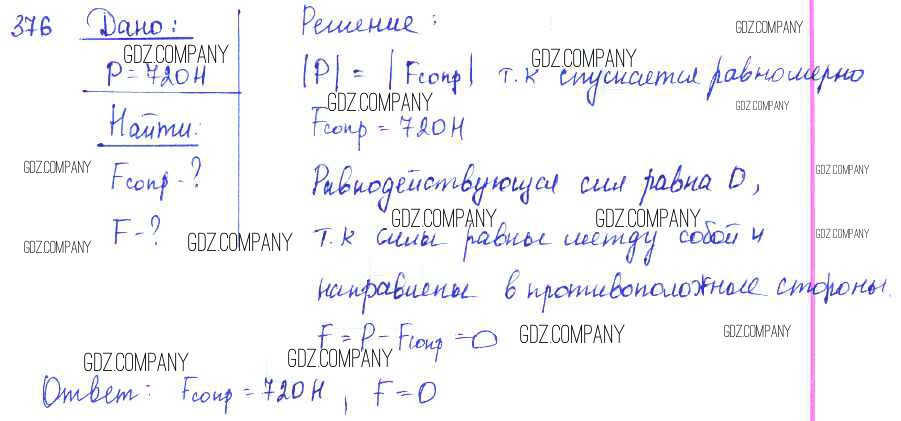 376 Дано: Решение:
GDZ.COMPANY
GDZ.COMPANY GDZ.COMPANY
P = 720 Н |P| = |Fсопр| т.к спускается равномерно
GDZ.COMPANY GDZ.COMPANY
Найти: Fсопр = 720 Н
GDZ.COMPANY GDZ.COMPANY
Fсопр - ? Равнодействующая сил равна 0,
GDZ.COMPANY GDZ.COMPANY
F - ? GDZ.COMPANY т.к силы равны между собой и GDZ.COMPANY
GDZ.COMPANY
направлены в противоположные стороны.
F = P - Fсопр = 0 GDZ.COMPANY GDZ.COMPANY
GDZ.COMPANY GDZ.COMPANY
Ответ: Fсопр = 720 Н, F = 0